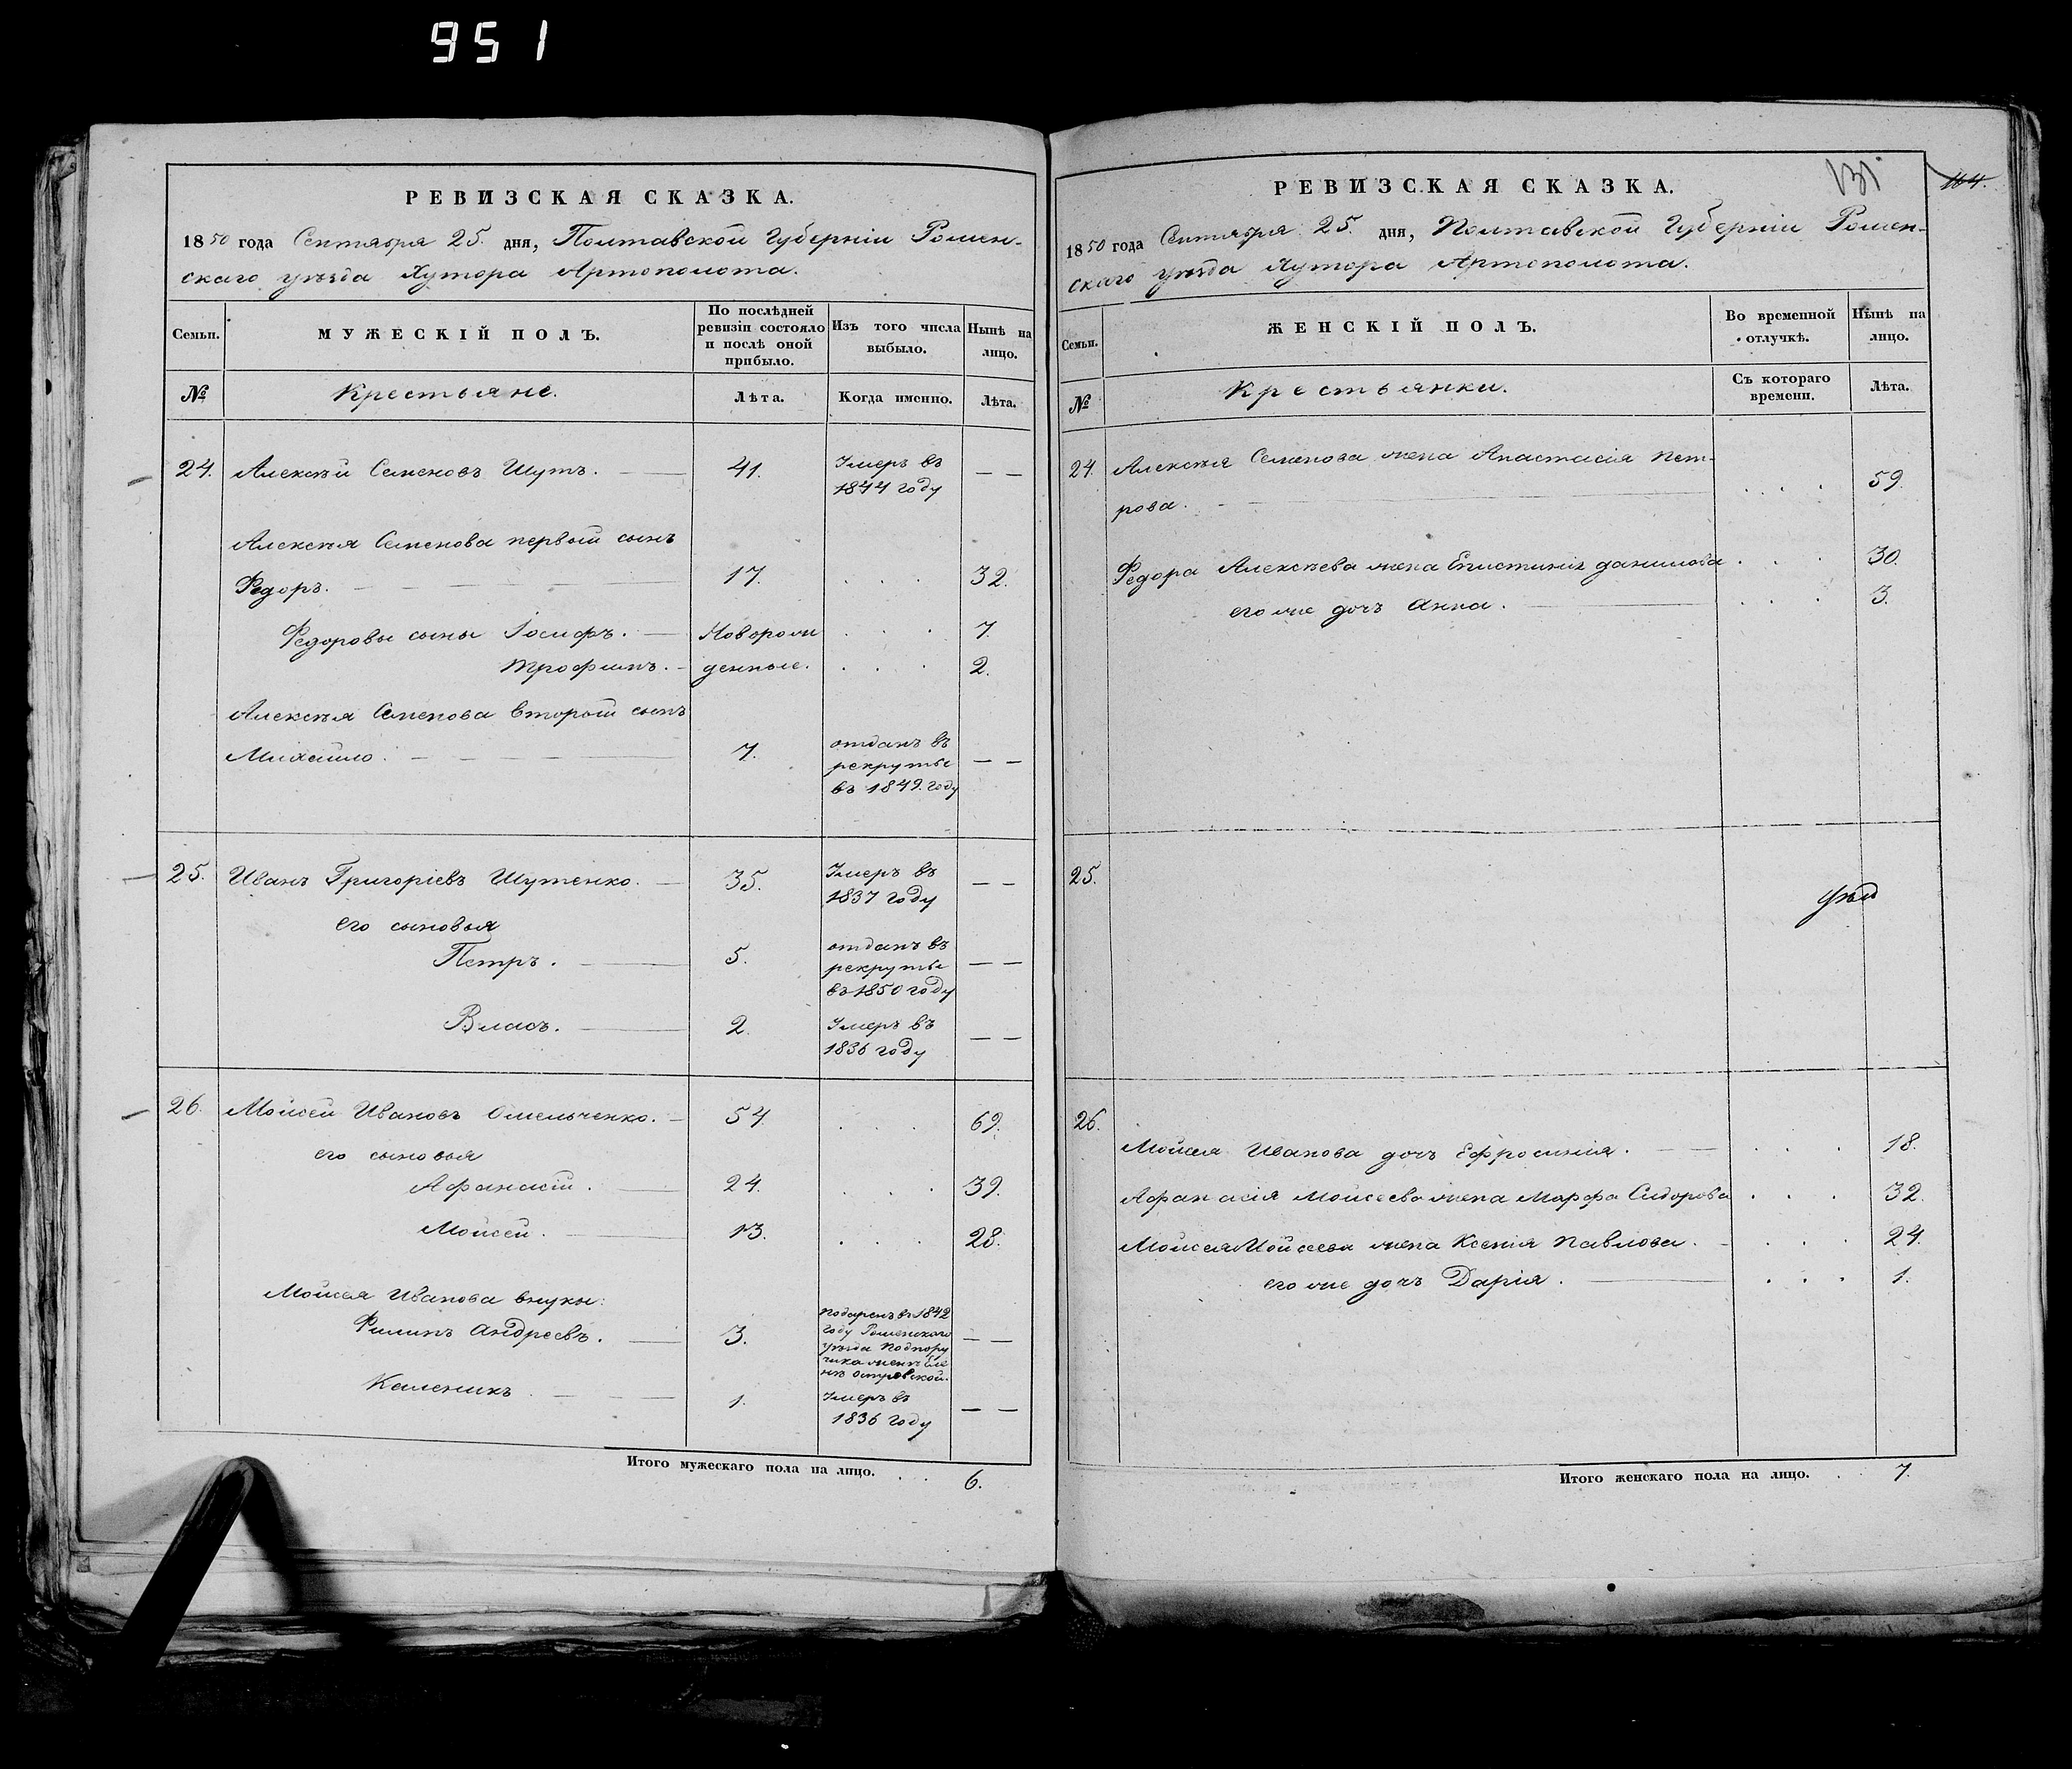 951
РЕВИЗСКАЯ СКАЗКА.
1850 года Сентября 25. дня, Полтавской Губерніи Ромен-
скаго уѣзда Хутора Артополота.
Семьи.
МУЖЕСКІЙ ПОЛЪ.
По послѣдней ревизіи состояло и послѣ оной прибыло.
Изъ того числа выбыло.
Нынѣ на лицо.
№
Крестьяне.
Лѣта.
Когда именно.
Лѣта.
24. Алексѣй Семеновъ Шутъ. 41. Умеръ въ — —
1844 году
Алексѣя Семенова первый сынъ
Федоръ. 17. . . . 32.
Федоровы сыны Іосифъ. Новорож . . . 7.
Трофимъ. денные. . . . 2.
Алексѣя Семенова второй сынъ
Михайло. 7. отданъ въ — —
рекруты
въ 1849. году
25. Иванъ Григоріевъ Шутенко. 35. Умеръ въ — —
1837 году
его сыновья
Петръ. 5. отданъ въ — —
рекруты
въ 1850 году
Власъ. 2. Умеръ въ — —
1836 году
26. Мойсей Ивановъ Омельченко. 54 . . . 69.
его сыновья
Афанасій. 24. . . . 39.
Мойсей. 13. . . . 28.
Мойсея Иванова внуки:
Филипъ Андреевъ. 3. Подаренъ въ 1842 — —
году Роменскаго
уѣзда Подпору
чика женѣ Еле
нѣ Островской.
Каленикъ 1. Умеръ въ — —
1836 году
Итого мужескаго пола на лицо. . . 6.
131
164.
РЕВИЗСКАЯ СКАЗКА.
1850 года Сентября 25. дня, Полтавской Губерніи Ромен-
скаго уѣзда Хутора Артополота.
Семьи.
ЖЕНСКІЙ ПОЛЪ.
Во временной отлучкѣ.
Нынѣ на лицо.
№
Крестьянки.
Съ котораго времени.
Лѣта.
24. Алексѣя Семенова жена Анастасія Пет-
рова. . . . 59.
Федора Алексѣева жена Епистинія Данилова . . . 30.
его же дочъ Анна. . . . 3.
25.
26.
Мойсея Иванова дочъ Ефросинія. . . . 18.
Афанасія Мойсеева жена Марфа Сидорова . . . 32.
Мойсея Мойсеева жена Ксенія Павлова. . . . 24.
его же дочъ Дарія. . . . 1.
Итого женскаго пола на лицо. . . 7.